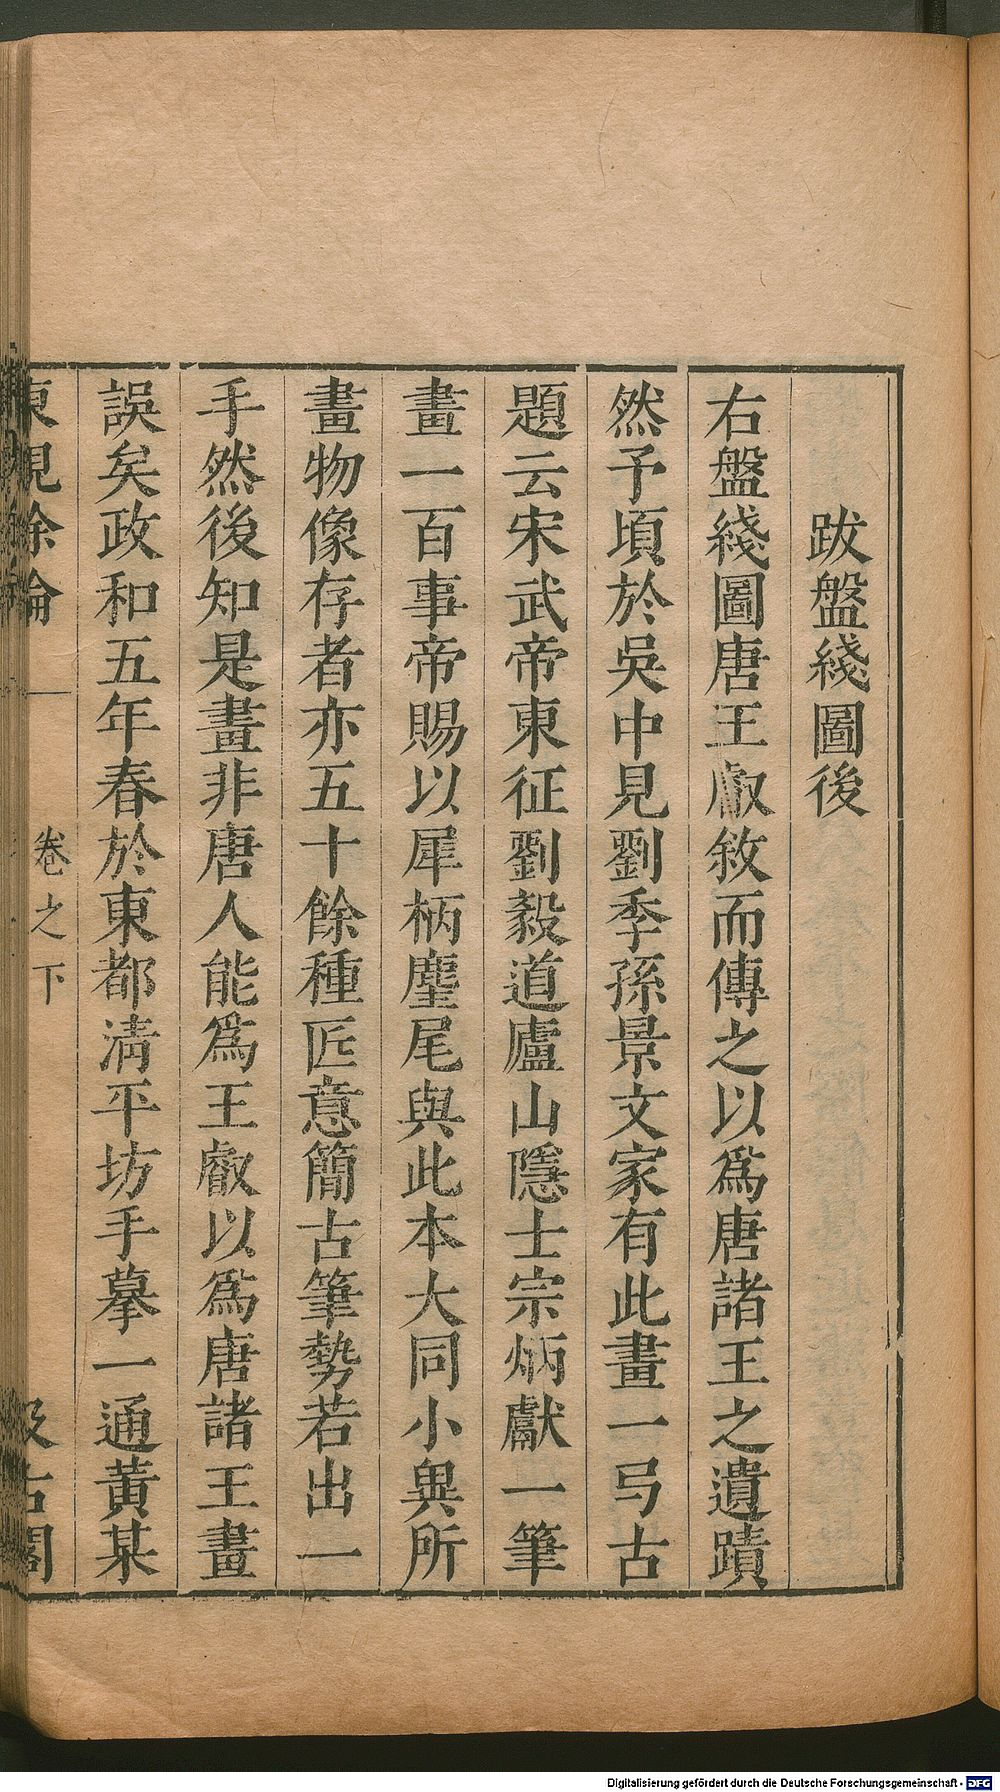 跋盤綫圖後
右盤綫圖唐王叡敘而傳之以爲唐諸王之遺蹟
然予頃於吳中見劉季孫景文家有此畫一弓古
題云宋武帝東征劉毅道廬山隱士宗炳獻一筆
畫一百事帝賜以犀柄麈尾與此本大同小異所
畫物像存者亦五十餘種匠意簡古筆勢若出一
手然後知是畫非唐人能爲王叡以爲唐諸王畫
誤矣政和五年春於東都淸平坊手摹一通黃某
東觀餘論 卷之下 汲古閣
Digitalisierung gefördert durch die Deutsche Forschungsgemeinschaft - DFG